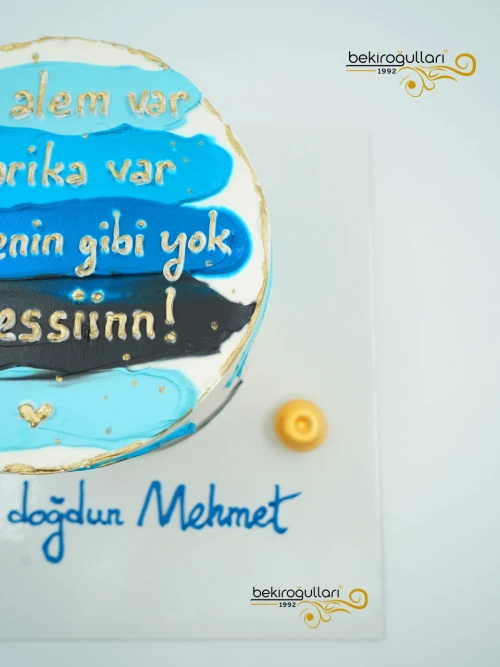 bekiroğulları
1992
alem var
arika var
enin gibi yok
essiinn!
doğdun Mehmet
bekiroğulları
1992